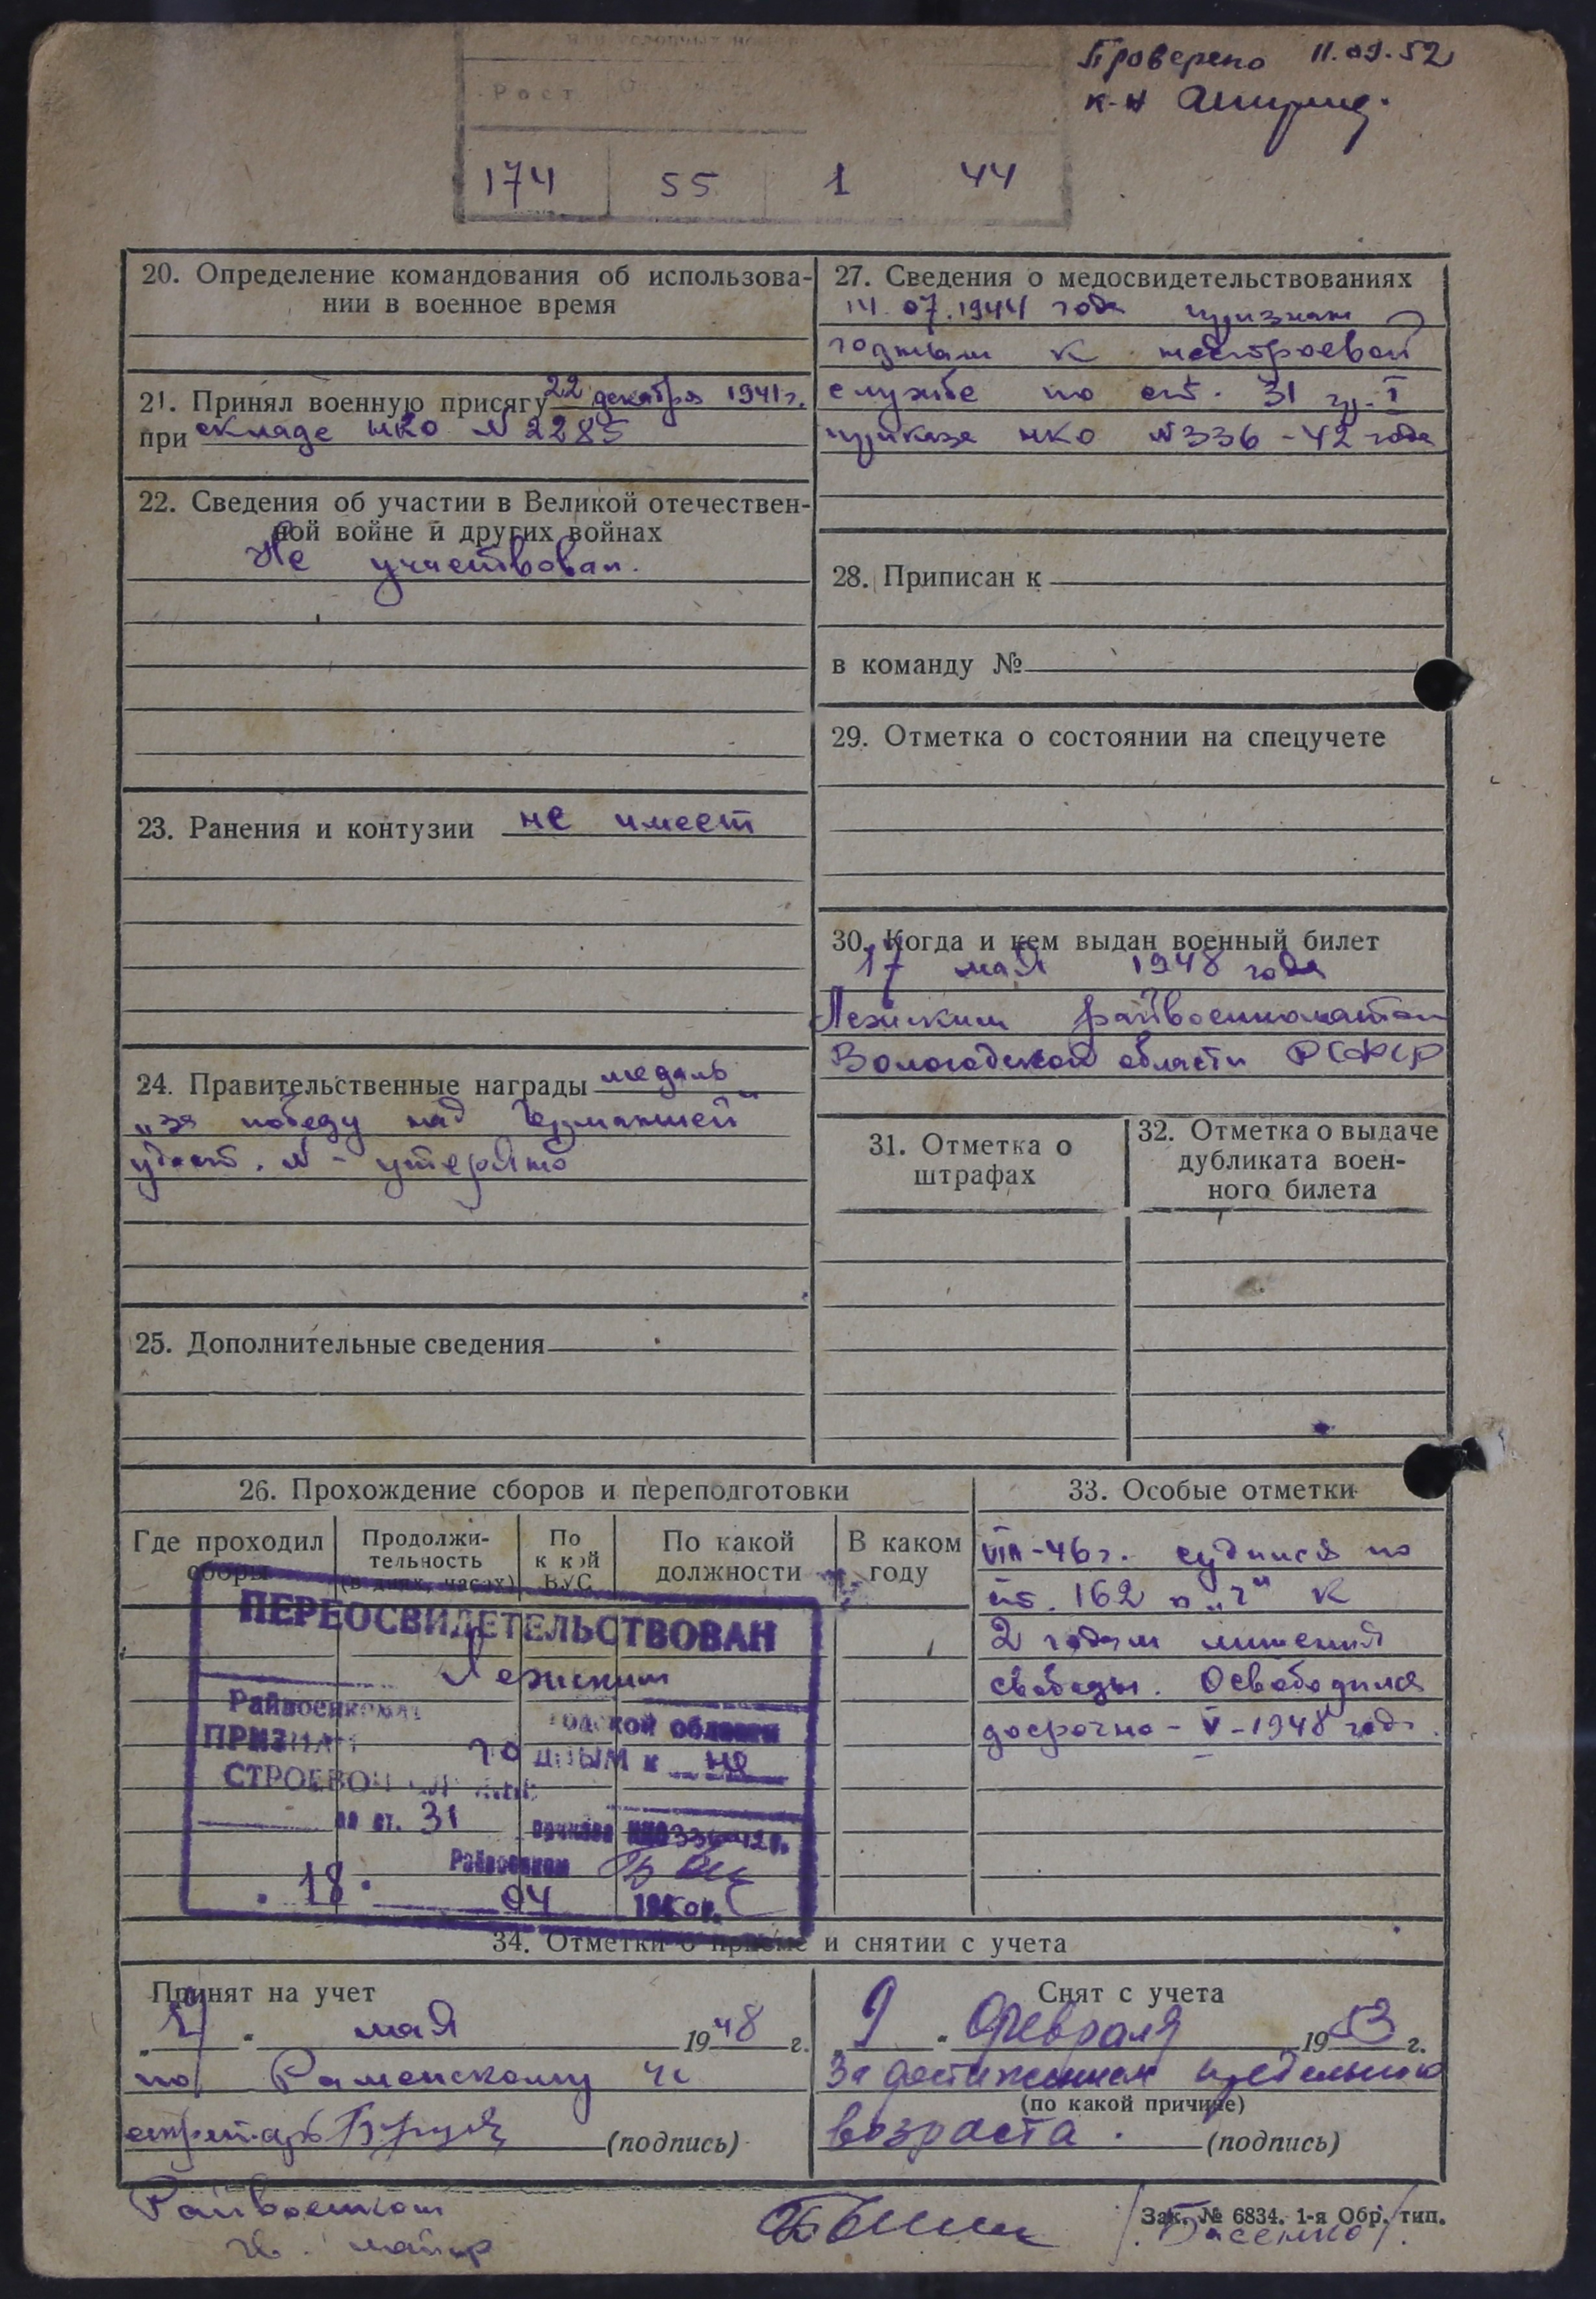 Проверено 11.09.52
к-н
Рост
174 55 1 44
20. Определение командования об использова-
нии в военное время
21. Принял военную присягу 22 декабря 1941 г.
при складе НКО № 2285
22. Сведения об участии в Великой отечествен-
ной войне и других войнах
Не участвовал.
23. Ранения и контузии не имеет
24. Правительственные награды медаль
„за победу над Германией"
удост. № - утеряно
25. Дополнительные сведения
27. Сведения о медосвидетельствованиях
14.07.1944 года признан
годным к нестроевой
службе по ст. 31 гр. I
приказа НКО №336-42 года
28. Приписан к
в команду №
29. Отметка о состоянии на спецучете
30. Когда и кем выдан военный билет
17 мая 1948 года
Лежским райвоенкоматом
Вологодской области РСФСР
31. Отметка о
штрафах
32. Отметка о выдаче
дубликата воен-
ного билета
26. Прохождение сборов и переподготовки
Где проходил
сборы
Продолжи-
тельность
(в днях, часах)
По
к кой
ВУС
По какой
должности
В каком
году
ПЕРЕОСВИДЕТЕЛЬСТВОВАН
Лежским
Райвоенкомат
годской области
ПРИЗНАН годным к не
СТРОЕВОЙ
по ст. 31 приказа НКО 336-42 г.
Райвоенком
18. 04 1950 г.
33. Особые отметки
VIII-46 г. судился по
ст. 162 п „г" к
2 годам лишения
свободы. Освободился
досрочно - V - 1948 год.
34. Отметки о приеме и снятии с учета
Принят на учет
мая 1948 г.
по Раменскому
(подпись)
Снят с учета
9 февраля 1953 г.
За достижением предельного
(по какой причине)
возраста. (подпись)
Райвоенком
гв. майор
/Васенко/.
Зак. № 6834. 1-я Обр. тип.